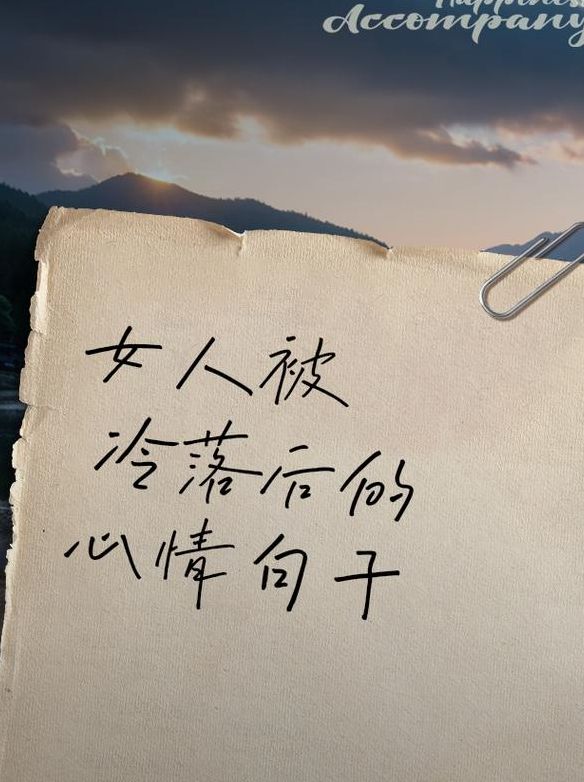 Happiness
Accompany
女人被
冷落后的
心情句子